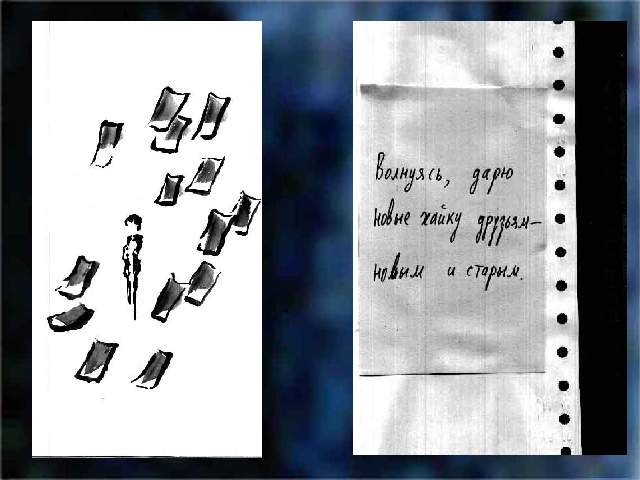 Волнуясь, дарю
новые хайку друзьям—
новым и старым.